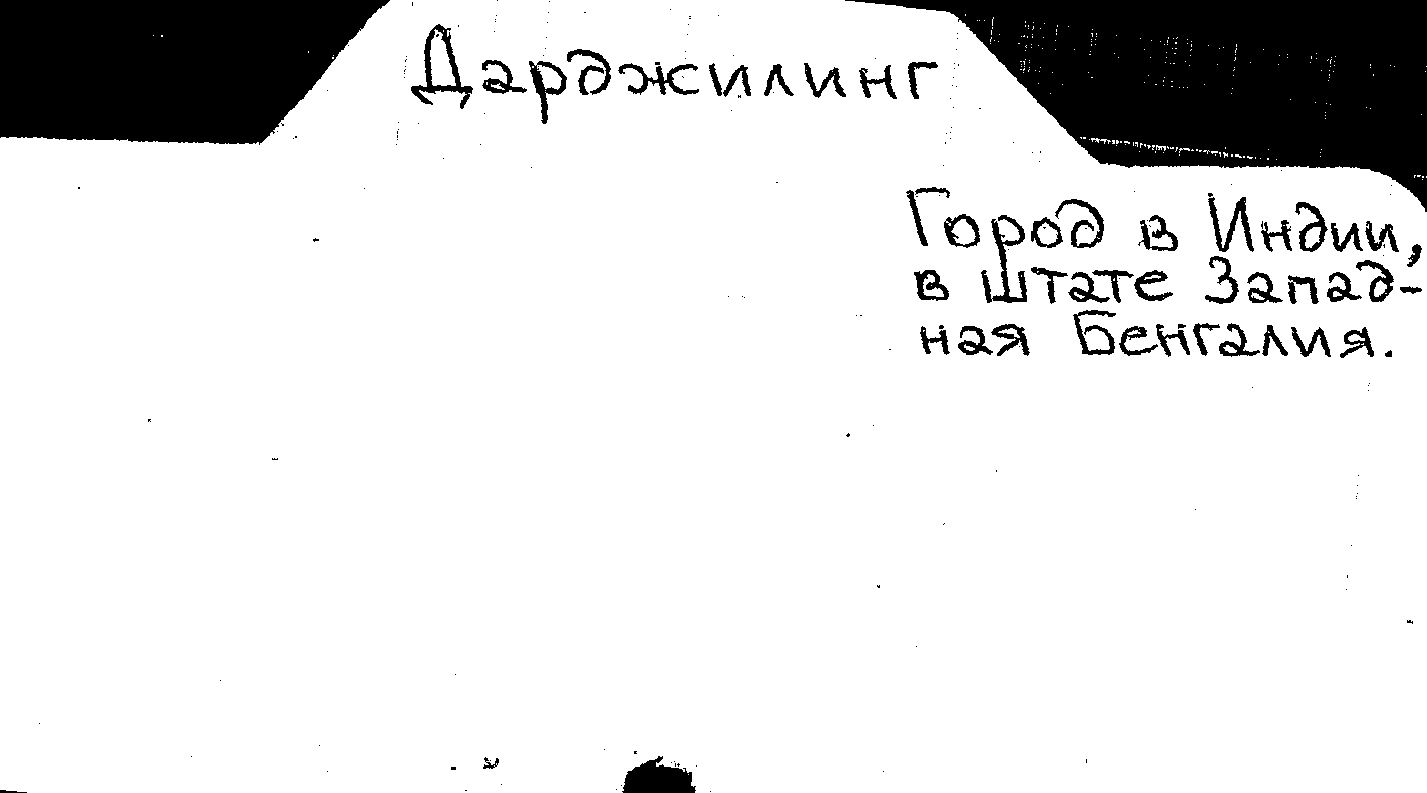 Дарджилинг
Город в Индии,
в штате Запад-
ная Бенгалия.